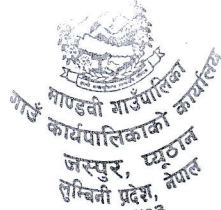 माण्डवी गाउँपालिका
गाउँ कार्यपालिकाको कार्यालय
जस्पुर, प्यूठान
लुम्बिनी प्रदेश, नेपाल